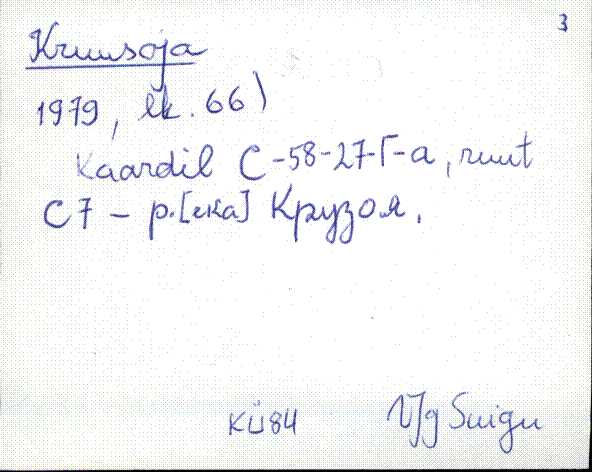 3
Kruusoja
1979, lk. 66)
Kaardil C-58-27-Г-а, ruut
C7 – р.[ека] Крузоя.
KÜ84 V/g Suigu